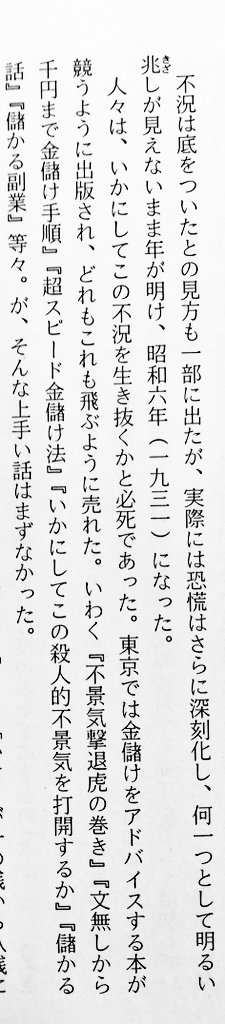 不況は底をついたとの見方も一部に出たが、実際には恐慌はさらに深刻化し、何一つとして明るい
兆しが見えないまま年が明け、昭和六年（一九三一）になった。
人々は、いかにしてこの不況を生き抜くかと必死であった。東京では金儲けをアドバイスする本が
競うように出版され、どれもこれも飛ぶように売れた。いわく『不景気撃退虎の巻き』『文無しから
千円まで金儲け手順』『超スピード金儲け法』『いかにしてこの殺人的不景気を打開するか』『儲かる
話』『儲かる副業』等々。が、そんな上手い話はまずなかった。